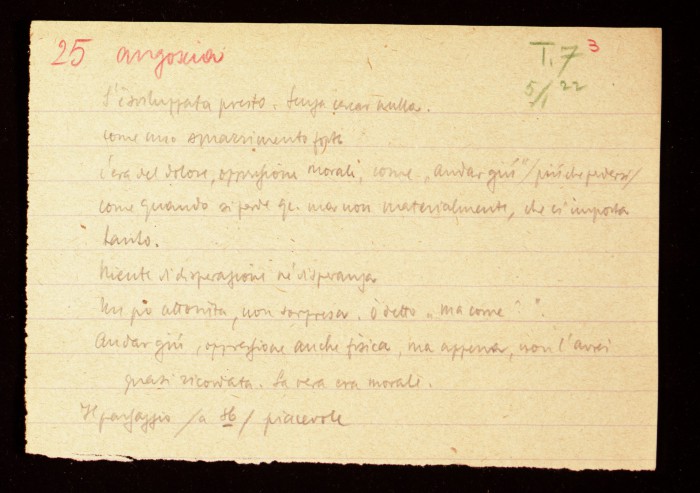 25 angoscia
T. 7 3
5/1 22
S'è sviluppata presto. Senza cercar nulla.
come uno smarrimento forte
c'era del dolore, oppressione morali, come „andar giù" / più che perdersi /
come quando si perde qc. ma non materialmente, che ci importa
tanto.
Niente di disperazione nè di speranza
Un pò attonita, non sorpresa. ò detto „ma come?".
Andar giù, oppressione anche fisica, ma appena, non l'avrei
quasi ricordata. La vera era morali.
Il passaggio / a / piacevole